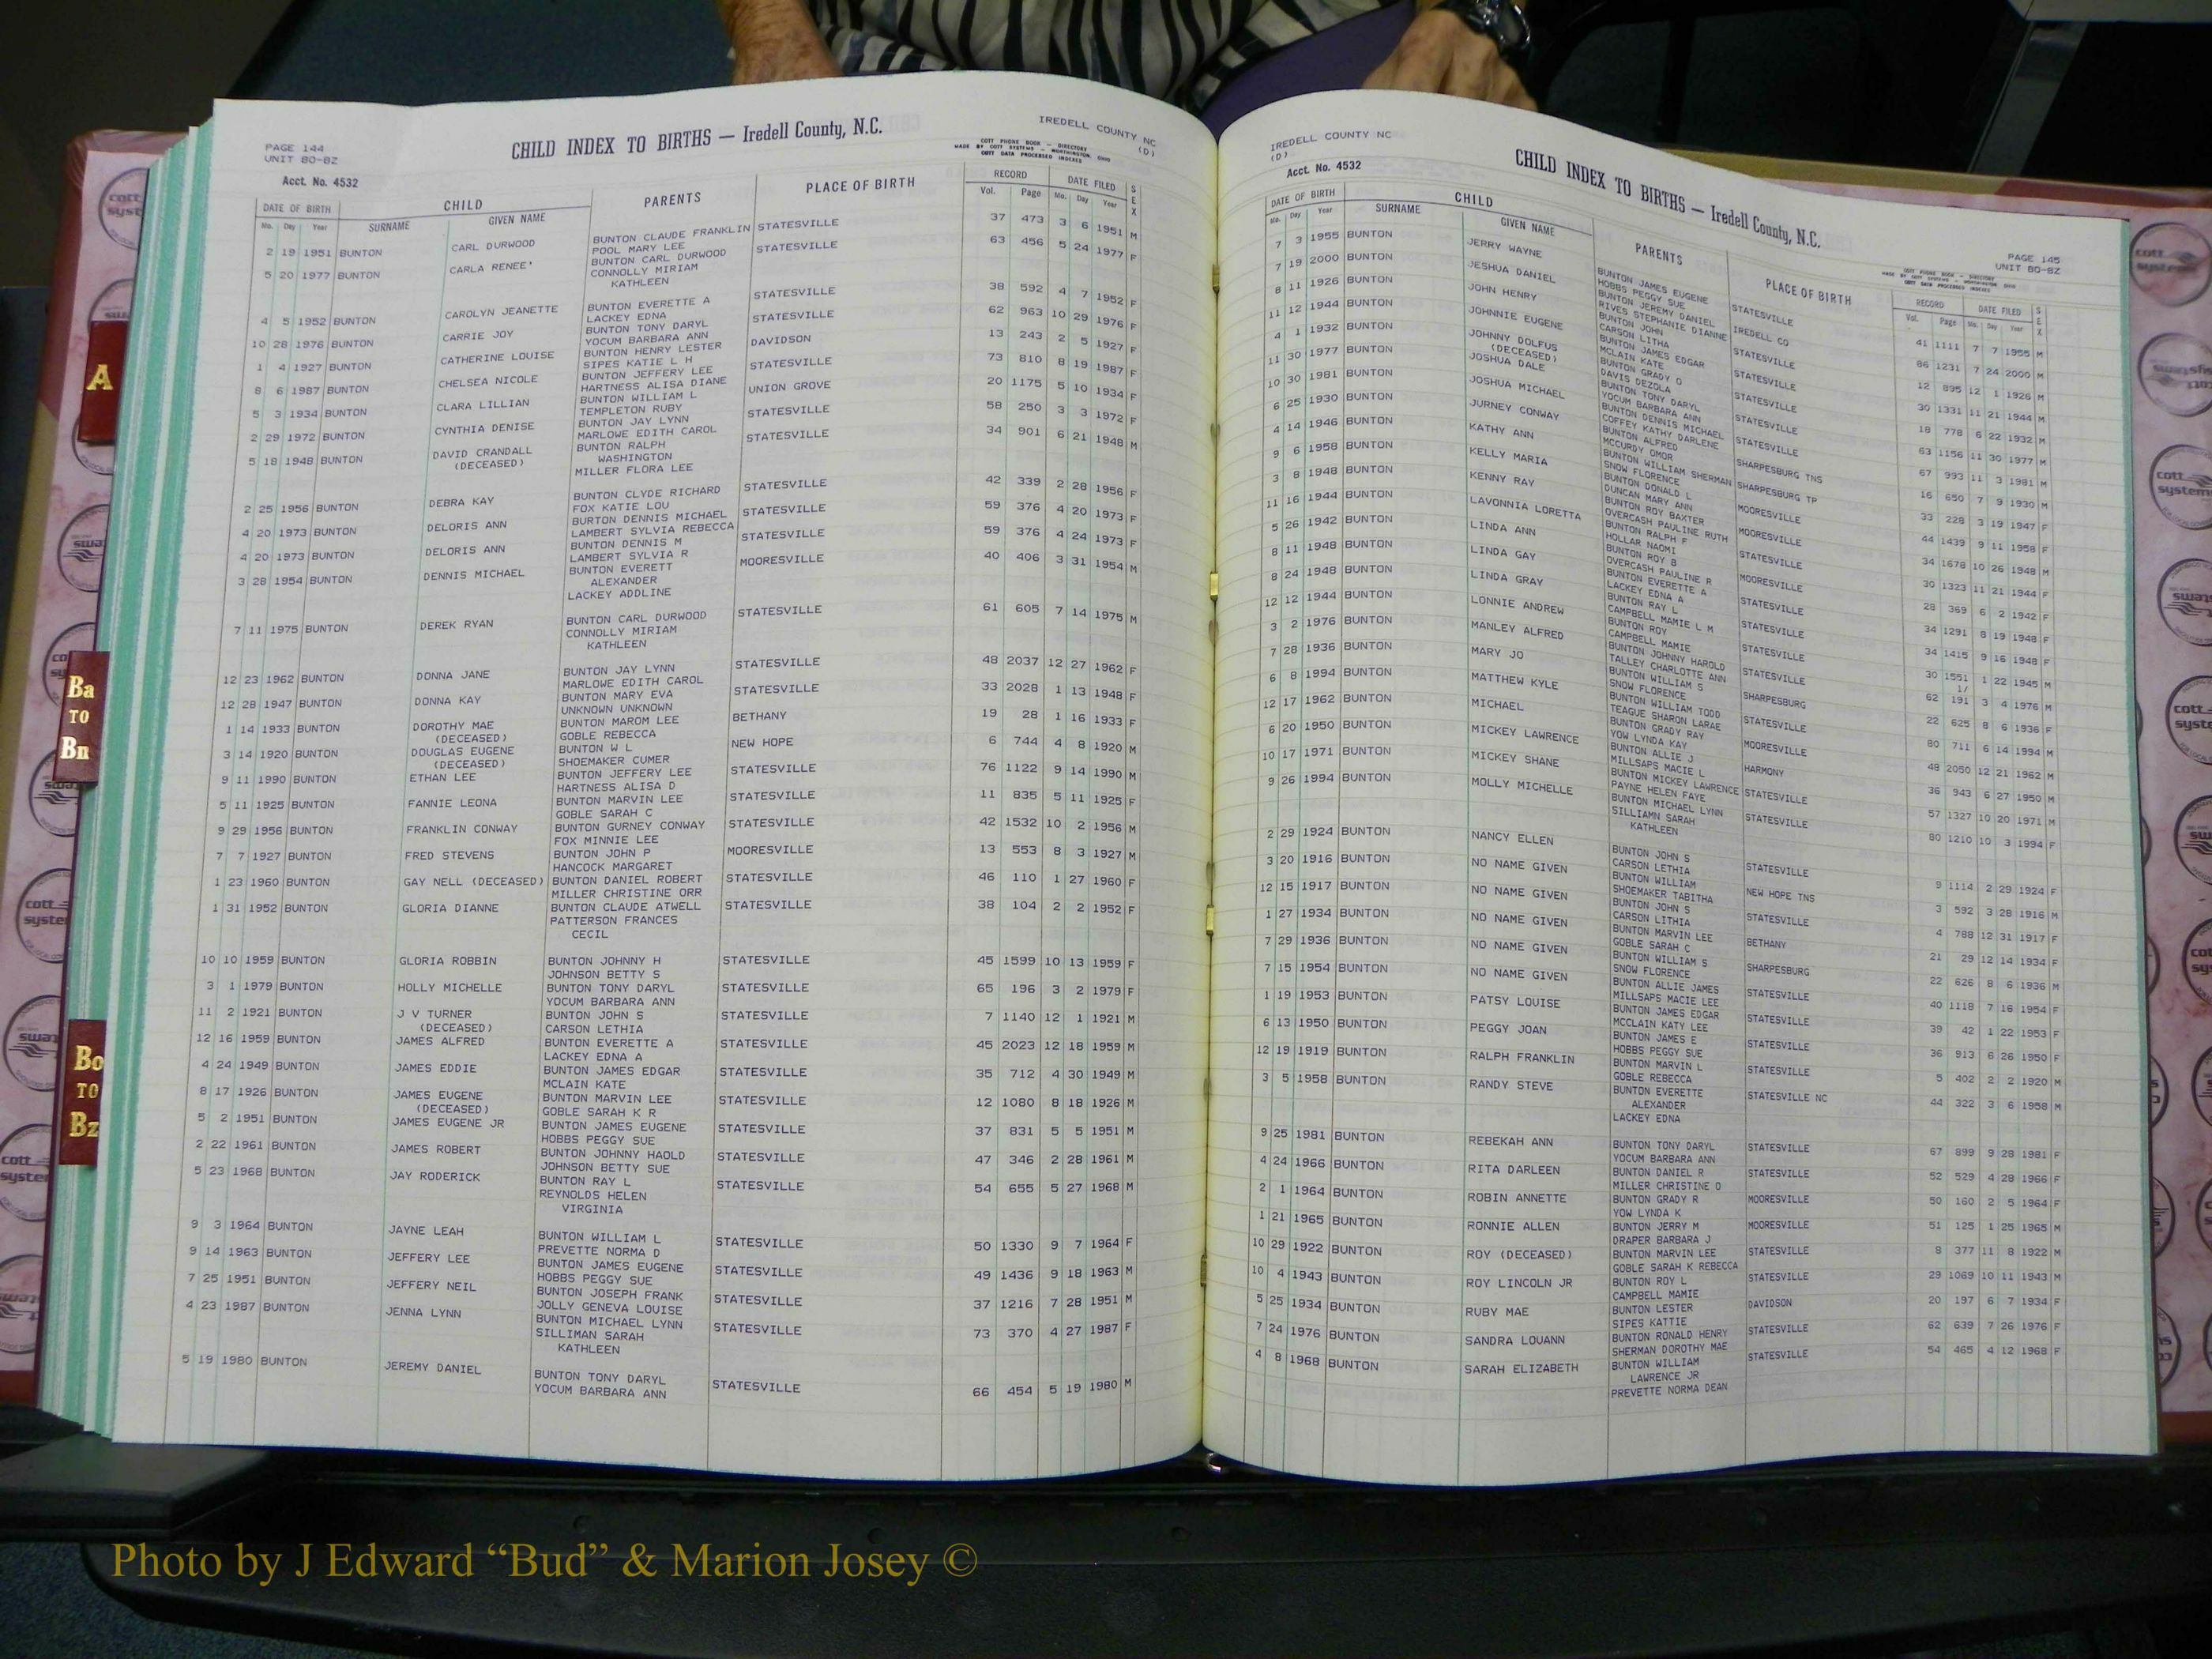 PAGE 144
UNIT BO-BZ
CHILD INDEX TO BIRTHS — Iredell County, N.C.
IREDELL COUNTY NC
(D)
COTT PHONE BOOK — DIRECTORY
MADE BY COTT SYSTEMS — WORTHINGTON, OHIO
COTT DATA PROCESSED INDEXES
Acct. No. 4532
DATE OF BIRTH CHILD PARENTS PLACE OF BIRTH RECORD DATE FILED SEX
Mo. Day Year SURNAME GIVEN NAME Vol. Page Mo. Day Year
2 19 1951 BUNTON CARL DURWOOD BUNTON CLAUDE FRANKLIN STATESVILLE 37 473 3 6 1951 M
POOL MARY LEE
5 20 1977 BUNTON CARLA RENEE' BUNTON CARL DURWOOD STATESVILLE 63 456 5 24 1977 F
CONNOLLY MIRIAM
KATHLEEN
4 5 1952 BUNTON CAROLYN JEANETTE BUNTON EVERETTE A STATESVILLE 38 592 4 7 1952 F
LACKEY EDNA
10 28 1976 BUNTON CARRIE JOY BUNTON TONY DARYL STATESVILLE 62 963 10 29 1976 F
YOCUM BARBARA ANN
1 4 1927 BUNTON CATHERINE LOUISE BUNTON HENRY LESTER DAVIDSON 13 243 2 5 1927 F
SIPES KATIE L H
8 6 1987 BUNTON CHELSEA NICOLE BUNTON JEFFERY LEE STATESVILLE 73 810 8 19 1987 F
HARTNESS ALISA DIANE
5 3 1934 BUNTON CLARA LILLIAN BUNTON WILLIAM L UNION GROVE 20 1175 5 10 1934 F
TEMPLETON RUBY
2 29 1972 BUNTON CYNTHIA DENISE BUNTON JAY LYNN STATESVILLE 58 250 3 3 1972 F
MARLOWE EDITH CAROL
5 18 1948 BUNTON DAVID CRANDALL BUNTON RALPH STATESVILLE 34 901 6 21 1948 M
(DECEASED) WASHINGTON
MILLER FLORA LEE
2 25 1956 BUNTON DEBRA KAY BUNTON CLYDE RICHARD STATESVILLE 42 339 2 28 1956 F
FOX KATIE LOU
4 20 1973 BUNTON DELORIS ANN BURTON DENNIS MICHAEL STATESVILLE 59 376 4 20 1973 F
LAMBERT SYLVIA REBECCA
4 20 1973 BUNTON DELORIS ANN BUNTON DENNIS M STATESVILLE 59 376 4 24 1973 F
LAMBERT SYLVIA R
3 28 1954 BUNTON DENNIS MICHAEL BUNTON EVERETT MOORESVILLE 40 406 3 31 1954 M
ALEXANDER
LACKEY ADDLINE
7 11 1975 BUNTON DEREK RYAN BUNTON CARL DURWOOD STATESVILLE 61 605 7 14 1975 M
CONNOLLY MIRIAM
KATHLEEN
12 23 1962 BUNTON DONNA JANE BUNTON JAY LYNN STATESVILLE 48 2037 12 27 1962 F
MARLOWE EDITH CAROL
12 28 1947 BUNTON DONNA KAY BUNTON MARY EVA STATESVILLE 33 2028 1 13 1948 F
UNKNOWN UNKNOWN
1 14 1933 BUNTON DOROTHY MAE BUNTON MAROM LEE BETHANY 19 28 1 16 1933 F
(DECEASED) GOBLE REBECCA
3 14 1920 BUNTON DOUGLAS EUGENE BUNTON W L NEW HOPE 6 744 4 8 1920 M
(DECEASED) SHOEMAKER CUMER
9 11 1990 BUNTON ETHAN LEE BUNTON JEFFERY LEE STATESVILLE 76 1122 9 14 1990 M
HARTNESS ALISA D
5 11 1925 BUNTON FANNIE LEONA BUNTON MARVIN LEE STATESVILLE 11 835 5 11 1925 F
GOBLE SARAH C
9 29 1956 BUNTON FRANKLIN CONWAY BUNTON GURNEY CONWAY STATESVILLE 42 1532 10 2 1956 M
FOX MINNIE LEE
7 7 1927 BUNTON FRED STEVENS BUNTON JOHN P MOORESVILLE 13 553 8 3 1927 M
HANCOCK MARGARET
1 23 1960 BUNTON GAY NELL (DECEASED) BUNTON DANIEL ROBERT STATESVILLE 46 110 1 27 1960 F
MILLER CHRISTINE ORR
1 31 1952 BUNTON GLORIA DIANNE BUNTON CLAUDE ATWELL STATESVILLE 38 104 2 2 1952 F
PATTERSON FRANCES
CECIL
10 10 1959 BUNTON GLORIA ROBBIN BUNTON JOHNNY H STATESVILLE 45 1599 10 13 1959 F
JOHNSON BETTY S
3 1 1979 BUNTON HOLLY MICHELLE BUNTON TONY DARYL STATESVILLE 65 196 3 2 1979 F
YOCUM BARBARA ANN
11 2 1921 BUNTON J V TURNER BUNTON JOHN S STATESVILLE 7 1140 12 1 1921 M
(DECEASED) CARSON LETHIA
12 16 1959 BUNTON JAMES ALFRED BUNTON EVERETTE A STATESVILLE 45 2023 12 18 1959 M
LACKEY EDNA A
4 24 1949 BUNTON JAMES EDDIE BUNTON JAMES EDGAR STATESVILLE 35 712 4 30 1949 M
MCLAIN KATE
8 17 1926 BUNTON JAMES EUGENE BUNTON MARVIN LEE STATESVILLE 12 1080 8 18 1926 M
(DECEASED) GOBLE SARAH K R
5 2 1951 BUNTON JAMES EUGENE JR BUNTON JAMES EUGENE STATESVILLE 37 831 5 5 1951 M
HOBBS PEGGY SUE
2 22 1961 BUNTON JAMES ROBERT BUNTON JOHNNY HAOLD STATESVILLE 47 346 2 28 1961 M
JOHNSON BETTY SUE
5 23 1968 BUNTON JAY RODERICK BUNTON RAY L STATESVILLE 54 655 5 27 1968 M
REYNOLDS HELEN
VIRGINIA
9 3 1964 BUNTON JAYNE LEAH BUNTON WILLIAM L STATESVILLE 50 1330 9 7 1964 F
PREVETTE NORMA D
9 14 1963 BUNTON JEFFERY LEE BUNTON JAMES EUGENE STATESVILLE 49 1436 9 18 1963 M
HOBBS PEGGY SUE
7 25 1951 BUNTON JEFFERY NEIL BUNTON JOSEPH FRANK STATESVILLE 37 1216 7 28 1951 M
JOLLY GENEVA LOUISE
4 23 1987 BUNTON JENNA LYNN BUNTON MICHAEL LYNN STATESVILLE 73 370 4 27 1987 F
SILLIMAN SARAH
KATHLEEN
5 19 1980 BUNTON JEREMY DANIEL BUNTON TONY DARYL STATESVILLE 66 454 5 19 1980 M
YOCUM BARBARA ANN
IREDELL COUNTY NC
(D)
Acct. No. 4532
CHILD INDEX TO BIRTHS — Iredell County, N.C.
PAGE 145
UNIT BO-BZ
DATE OF BIRTH CHILD PARENTS PLACE OF BIRTH RECORD DATE FILED SEX
Mo. Day Year SURNAME GIVEN NAME Vol. Page Mo. Day Year
7 3 1955 BUNTON JERRY WAYNE BUNTON JAMES EUGENE STATESVILLE 41 1111 7 7 1955 M
HOBBS PEGGY SUE
7 19 2000 BUNTON JESHUA DANIEL BUNTON JEREMY DANIEL IREDELL CO 86 1231 7 24 2000 M
RIVES STEPHANIE DIANNE
8 11 1926 BUNTON JOHN HENRY BUNTON JOHN STATESVILLE 12 895 12 1 1926 M
CARSON LITHA
11 12 1944 BUNTON JOHNNIE EUGENE BUNTON JAMES EDGAR STATESVILLE 30 1331 11 21 1944 M
MCLAIN KATE
4 1 1932 BUNTON JOHNNY DOLFUS BUNTON GRADY O STATESVILLE 18 778 6 22 1932 M
(DECEASED) DAVIS DEZOLA
11 30 1977 BUNTON JOSHUA DALE BUNTON TONY DARYL STATESVILLE 63 1156 11 30 1977 M
YOCUM BARBARA ANN
10 30 1981 BUNTON JOSHUA MICHAEL BUNTON DENNIS MICHAEL STATESVILLE 67 993 11 3 1981 M
COFFEY KATHY DARLENE
6 25 1930 BUNTON JURNEY CONWAY BUNTON ALFRED SHARPESBURG TNS 16 650 7 9 1930 M
MCCURDY OMOR
4 14 1946 BUNTON KATHY ANN BUNTON WILLIAM SHERMAN SHARPESBURG TP 33 228 3 19 1947 F
SNOW FLORENCE
9 6 1958 BUNTON KELLY MARIA BUNTON DONALD L MOORESVILLE 44 1439 9 11 1958 F
DUNCAN MARY ANN
3 8 1948 BUNTON KENNY RAY BUNTON ROY BAXTER MOORESVILLE 34 1678 10 26 1948 M
OVERCASH PAULINE RUTH
11 16 1944 BUNTON LAVONNIA LORETTA BUNTON RALPH F STATESVILLE 30 1323 11 21 1944 F
HOLLAR NAOMI
5 26 1942 BUNTON LINDA ANN BUNTON ROY B MOORESVILLE 28 369 6 2 1942 F
OVERCASH PAULINE R
8 11 1948 BUNTON LINDA GAY BUNTON EVERETTE A STATESVILLE 34 1291 8 19 1948 F
LACKEY EDNA A
8 24 1948 BUNTON LINDA GRAY BUNTON RAY L STATESVILLE 34 1415 9 16 1948 F
CAMPBELL MAMIE L M
12 12 1944 BUNTON LONNIE ANDREW BUNTON ROY STATESVILLE 30 1551 1 22 1945 M
CAMPBELL MAMIE 1/
3 2 1976 BUNTON MANLEY ALFRED BUNTON JOHNNY HAROLD STATESVILLE 62 191 3 4 1976 M
TALLEY CHARLOTTE ANN
7 28 1936 BUNTON MARY JO BUNTON WILLIAM S SHARPESBURG 22 625 8 6 1936 F
SNOW FLORENCE
6 8 1994 BUNTON MATTHEW KYLE BUNTON WILLIAM TODD STATESVILLE 80 711 6 14 1994 M
TEAGUE SHARON LARAE
12 17 1962 BUNTON MICHAEL BUNTON GRADY RAY MOORESVILLE 48 2050 12 21 1962 M
YOW LYNDA KAY
6 20 1950 BUNTON MICKEY LAWRENCE BUNTON ALLIE J HARMONY 36 943 6 27 1950 M
MILLSAPS MACIE L
10 17 1971 BUNTON MICKEY SHANE BUNTON MICKEY LAWRENCE STATESVILLE 57 1327 10 20 1971 M
PAYNE HELEN FAYE
9 26 1994 BUNTON MOLLY MICHELLE BUNTON MICHAEL LYNN STATESVILLE 80 1210 10 3 1994 F
SILLIAMN SARAH
KATHLEEN
2 29 1924 BUNTON NANCY ELLEN BUNTON JOHN S STATESVILLE 9 1114 2 29 1924 F
CARSON LETHIA
3 20 1916 BUNTON NO NAME GIVEN BUNTON WILLIAM NEW HOPE TNS 3 592 3 28 1916 M
SHOEMAKER TABITHA
12 15 1917 BUNTON NO NAME GIVEN BUNTON JOHN S STATESVILLE 4 788 12 31 1917 F
CARSON LITHIA
1 27 1934 BUNTON NO NAME GIVEN BUNTON MARVIN LEE BETHANY 21 29 12 14 1934 F
GOBLE SARAH C
7 29 1936 BUNTON NO NAME GIVEN BUNTON WILLIAM S SHARPESBURG 22 626 8 6 1936 M
SNOW FLORENCE
7 15 1954 BUNTON NO NAME GIVEN BUNTON ALLIE JAMES STATESVILLE 40 1118 7 16 1954 F
MILLSAPS MACIE LEE
1 19 1953 BUNTON PATSY LOUISE BUNTON JAMES EDGAR STATESVILLE 39 42 1 22 1953 F
MCCLAIN KATY LEE
6 13 1950 BUNTON PEGGY JOAN BUNTON JAMES E STATESVILLE 36 913 6 26 1950 F
HOBBS PEGGY SUE
12 19 1919 BUNTON RALPH FRANKLIN BUNTON MARVIN L STATESVILLE 5 402 2 2 1920 M
GOBLE REBECCA
3 5 1958 BUNTON RANDY STEVE BUNTON EVERETTE STATESVILLE NC 44 322 3 6 1958 M
ALEXANDER
LACKEY EDNA
9 25 1981 BUNTON REBEKAH ANN BUNTON TONY DARYL STATESVILLE 67 899 9 28 1981 F
YOCUM BARBARA ANN
4 24 1966 BUNTON RITA DARLEEN BUNTON DANIEL R STATESVILLE 52 529 4 28 1966 F
MILLER CHRISTINE O
2 1 1964 BUNTON ROBIN ANNETTE BUNTON GRADY R MOORESVILLE 50 160 2 5 1964 F
YOW LYNDA K
1 21 1965 BUNTON RONNIE ALLEN BUNTON JERRY M MOORESVILLE 51 125 1 25 1965 M
DRAPER BARBARA J
10 29 1922 BUNTON ROY (DECEASED) BUNTON MARVIN LEE STATESVILLE 8 377 11 8 1922 M
GOBLE SARAH K REBECCA
10 4 1943 BUNTON ROY LINCOLN JR BUNTON ROY L STATESVILLE 29 1069 10 11 1943 M
CAMPBELL MAMIE
5 25 1934 BUNTON RUBY MAE BUNTON LESTER DAVIDSON 20 197 6 7 1934 F
SIPES KATTIE
7 24 1976 BUNTON SANDRA LOUANN BUNTON RONALD HENRY STATESVILLE 62 639 7 26 1976 F
SHERMAN DOROTHY MAE
4 8 1968 BUNTON SARAH ELIZABETH BUNTON WILLIAM STATESVILLE 54 465 4 12 1968 F
LAWRENCE JR
PREVETTE NORMA DEAN
A
Ba
TO
Bn
Bo
TO
Bz
Photo by J Edward “Bud” & Marion Josey ©